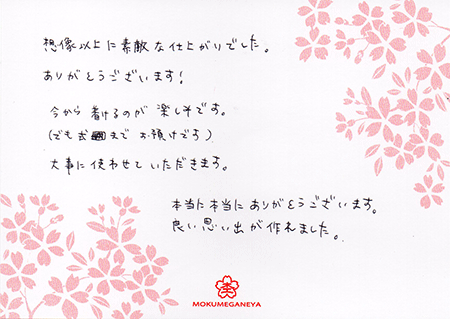 想像以上に素敵な仕上がりでした。
ありがとうございます!
今から着けるのが楽しみです。
(でも式まで お預けです)
大事に使わせていただきます。
本当に本当にありがとうございます。
良い思い出が作れました。
MOKUMEGANEYA